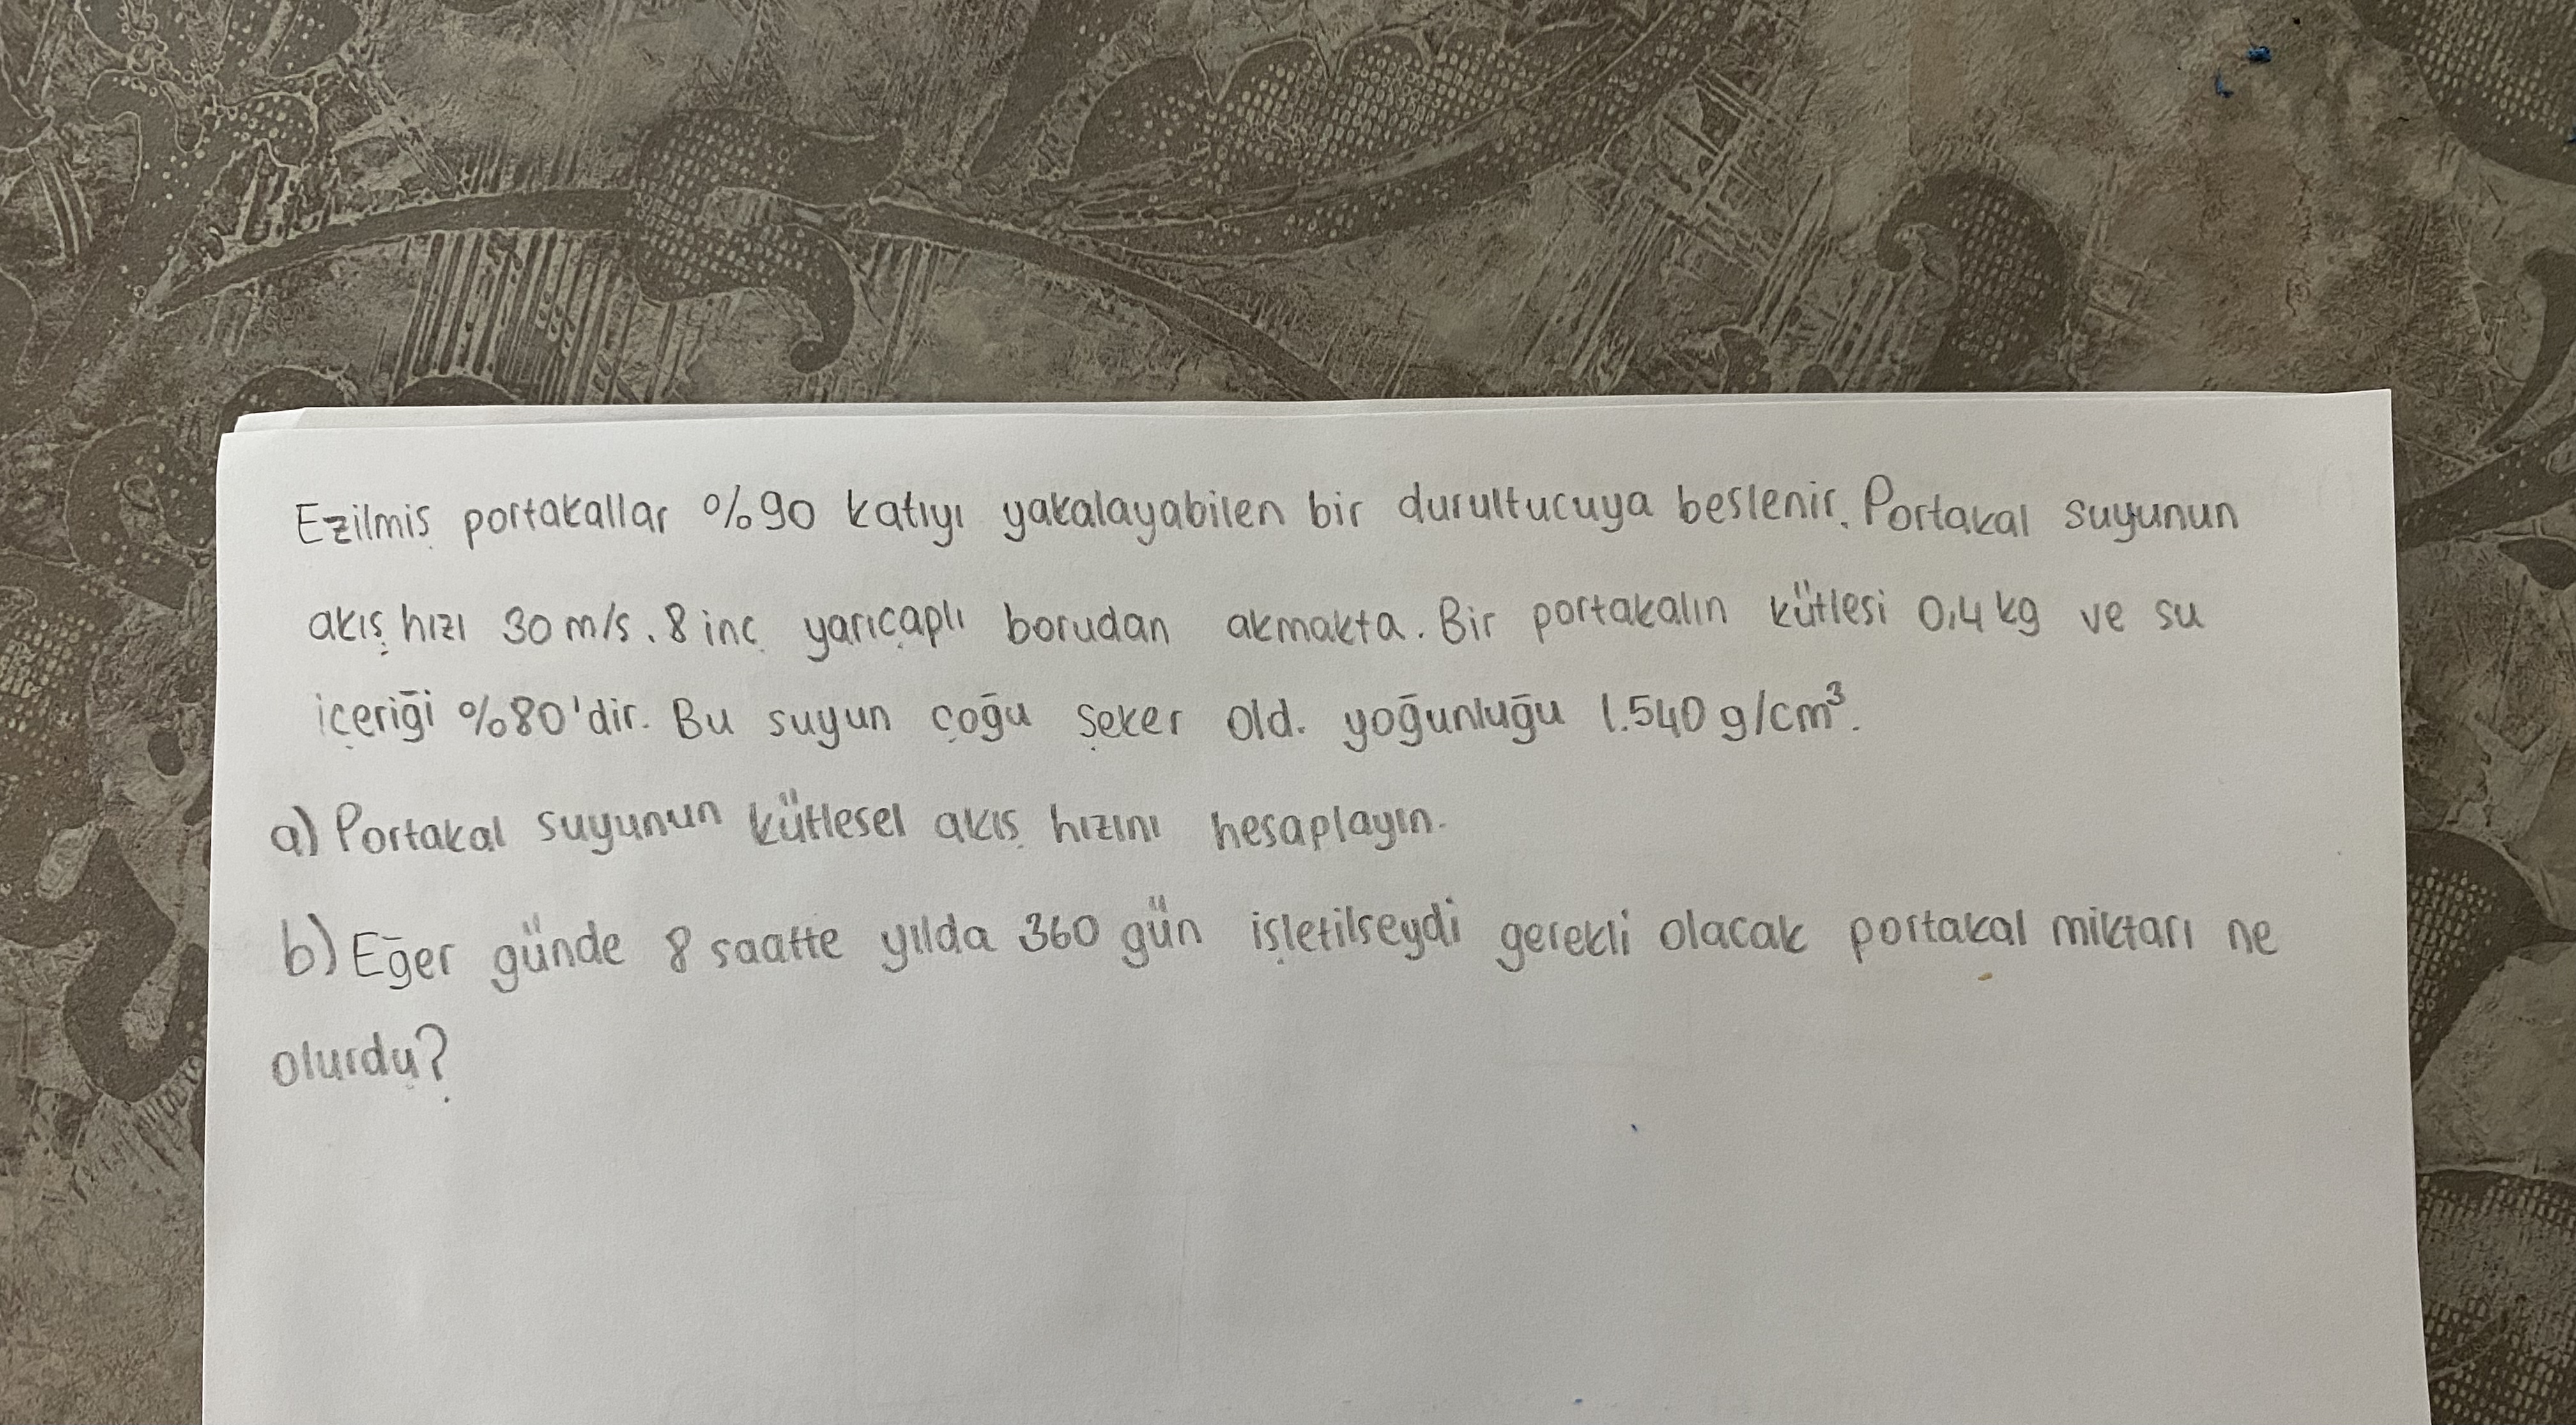 Ezilmiş portakallar %90 katıyı yakalayabilen bir durultucuya beslenir. Portakal suyunun
akış hızı 30 m/s. 8 inç yarıçaplı borudan akmakta. Bir portakalın kütlesi 0,4 kg ve su
içeriği %80'dir. Bu suyun çoğu şeker old. yoğunluğu 1.540 g/cm³.
a) Portakal suyunun kütlesel akış hızını hesaplayın.
b) Eğer günde 8 saatte yılda 360 gün işletilseydi gerekli olacak portakal miktarı ne
olurdu?